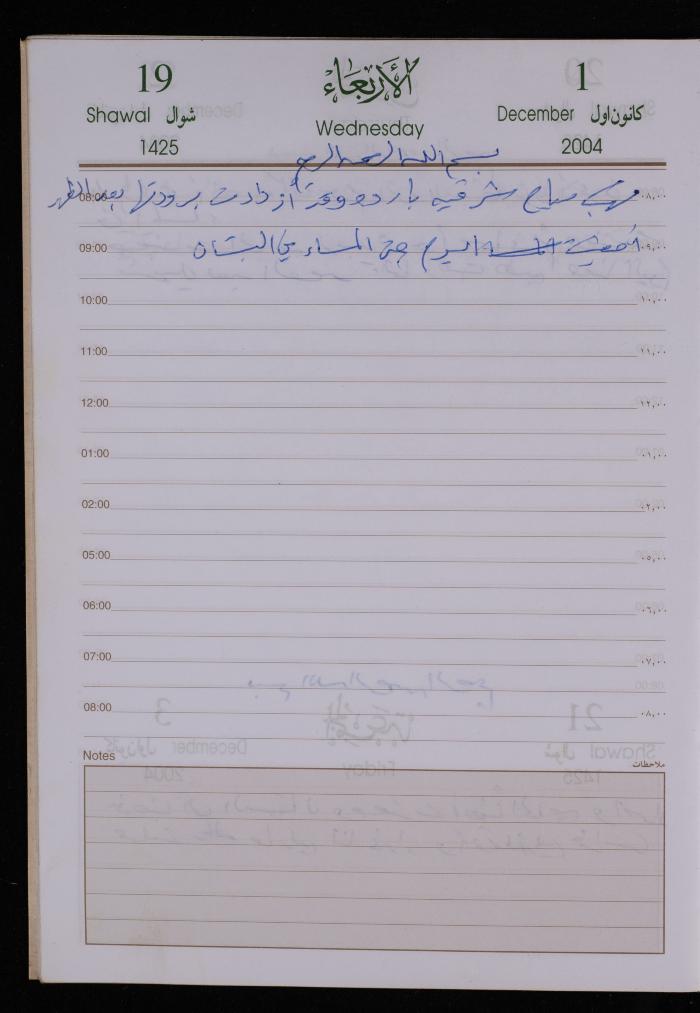 19 الأربعاء 1
Shawal شوال Wednesday December كانون اول
1425 2004
بسم الله الرحمن الرحيم
08:00 مهب صباح شرقيه بارده وقد أزدادت برودتها بعد الظهر ٠٨,٠٠
09:00 اليوم حتى المساء في البستان ٠٩,٠٠
10:00 ١٠,٠٠
11:00 ١١,٠٠
12:00 ١٢,٠٠
01:00 ٠١,٠٠
02:00 ٠٢,٠٠
05:00 ٠٥,٠٠
06:00 ٠٦,٠٠
07:00 ٠٧,٠٠
08:00 ٠٨,٠٠
Notes ملاحظات